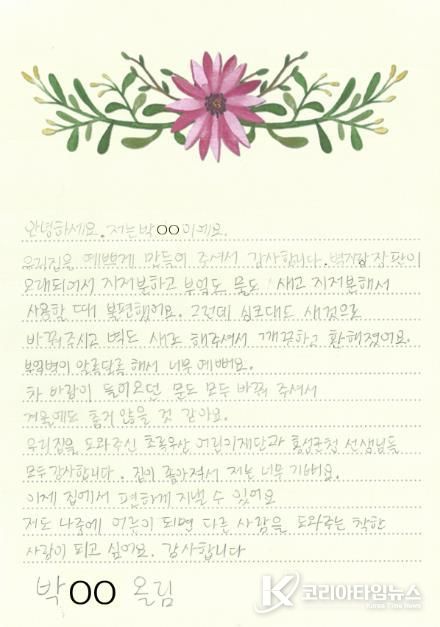 안녕하세요. 저는 박OO이예요.
우리집을 예쁘게 만들어 주셔서 감사합니다. 벽지랑 장판이
오래되어서 지저분하고 부엌도 물도 새고 지저분해서
사용할 때 불편했어요. 그런데 싱크대도 새것으로
바꿔주시고 벽도 새로 해주셔서 깨끗하고 환해졌어요.
부엌벽이 알록달록해서 너무 예뻐요.
차 바람이 들어오던 문도 모두 바꿔 주셔서
겨울에도 춥지 않을 것 같아요.
우리집을 도와주신 초록우산 어린이재단과 홍성군청 선생님들
모두 감사합니다. 집이 좋아져서 저는 너무 기뻐요.
이제 집에서 편하게 지낼 수 있어요
저도 나중에 어른이 되면 다른 사람을 도와주는 착한
사람이 되고 싶어요. 감사합니다
박OO 올림
코리아타임뉴스
Korea Time News